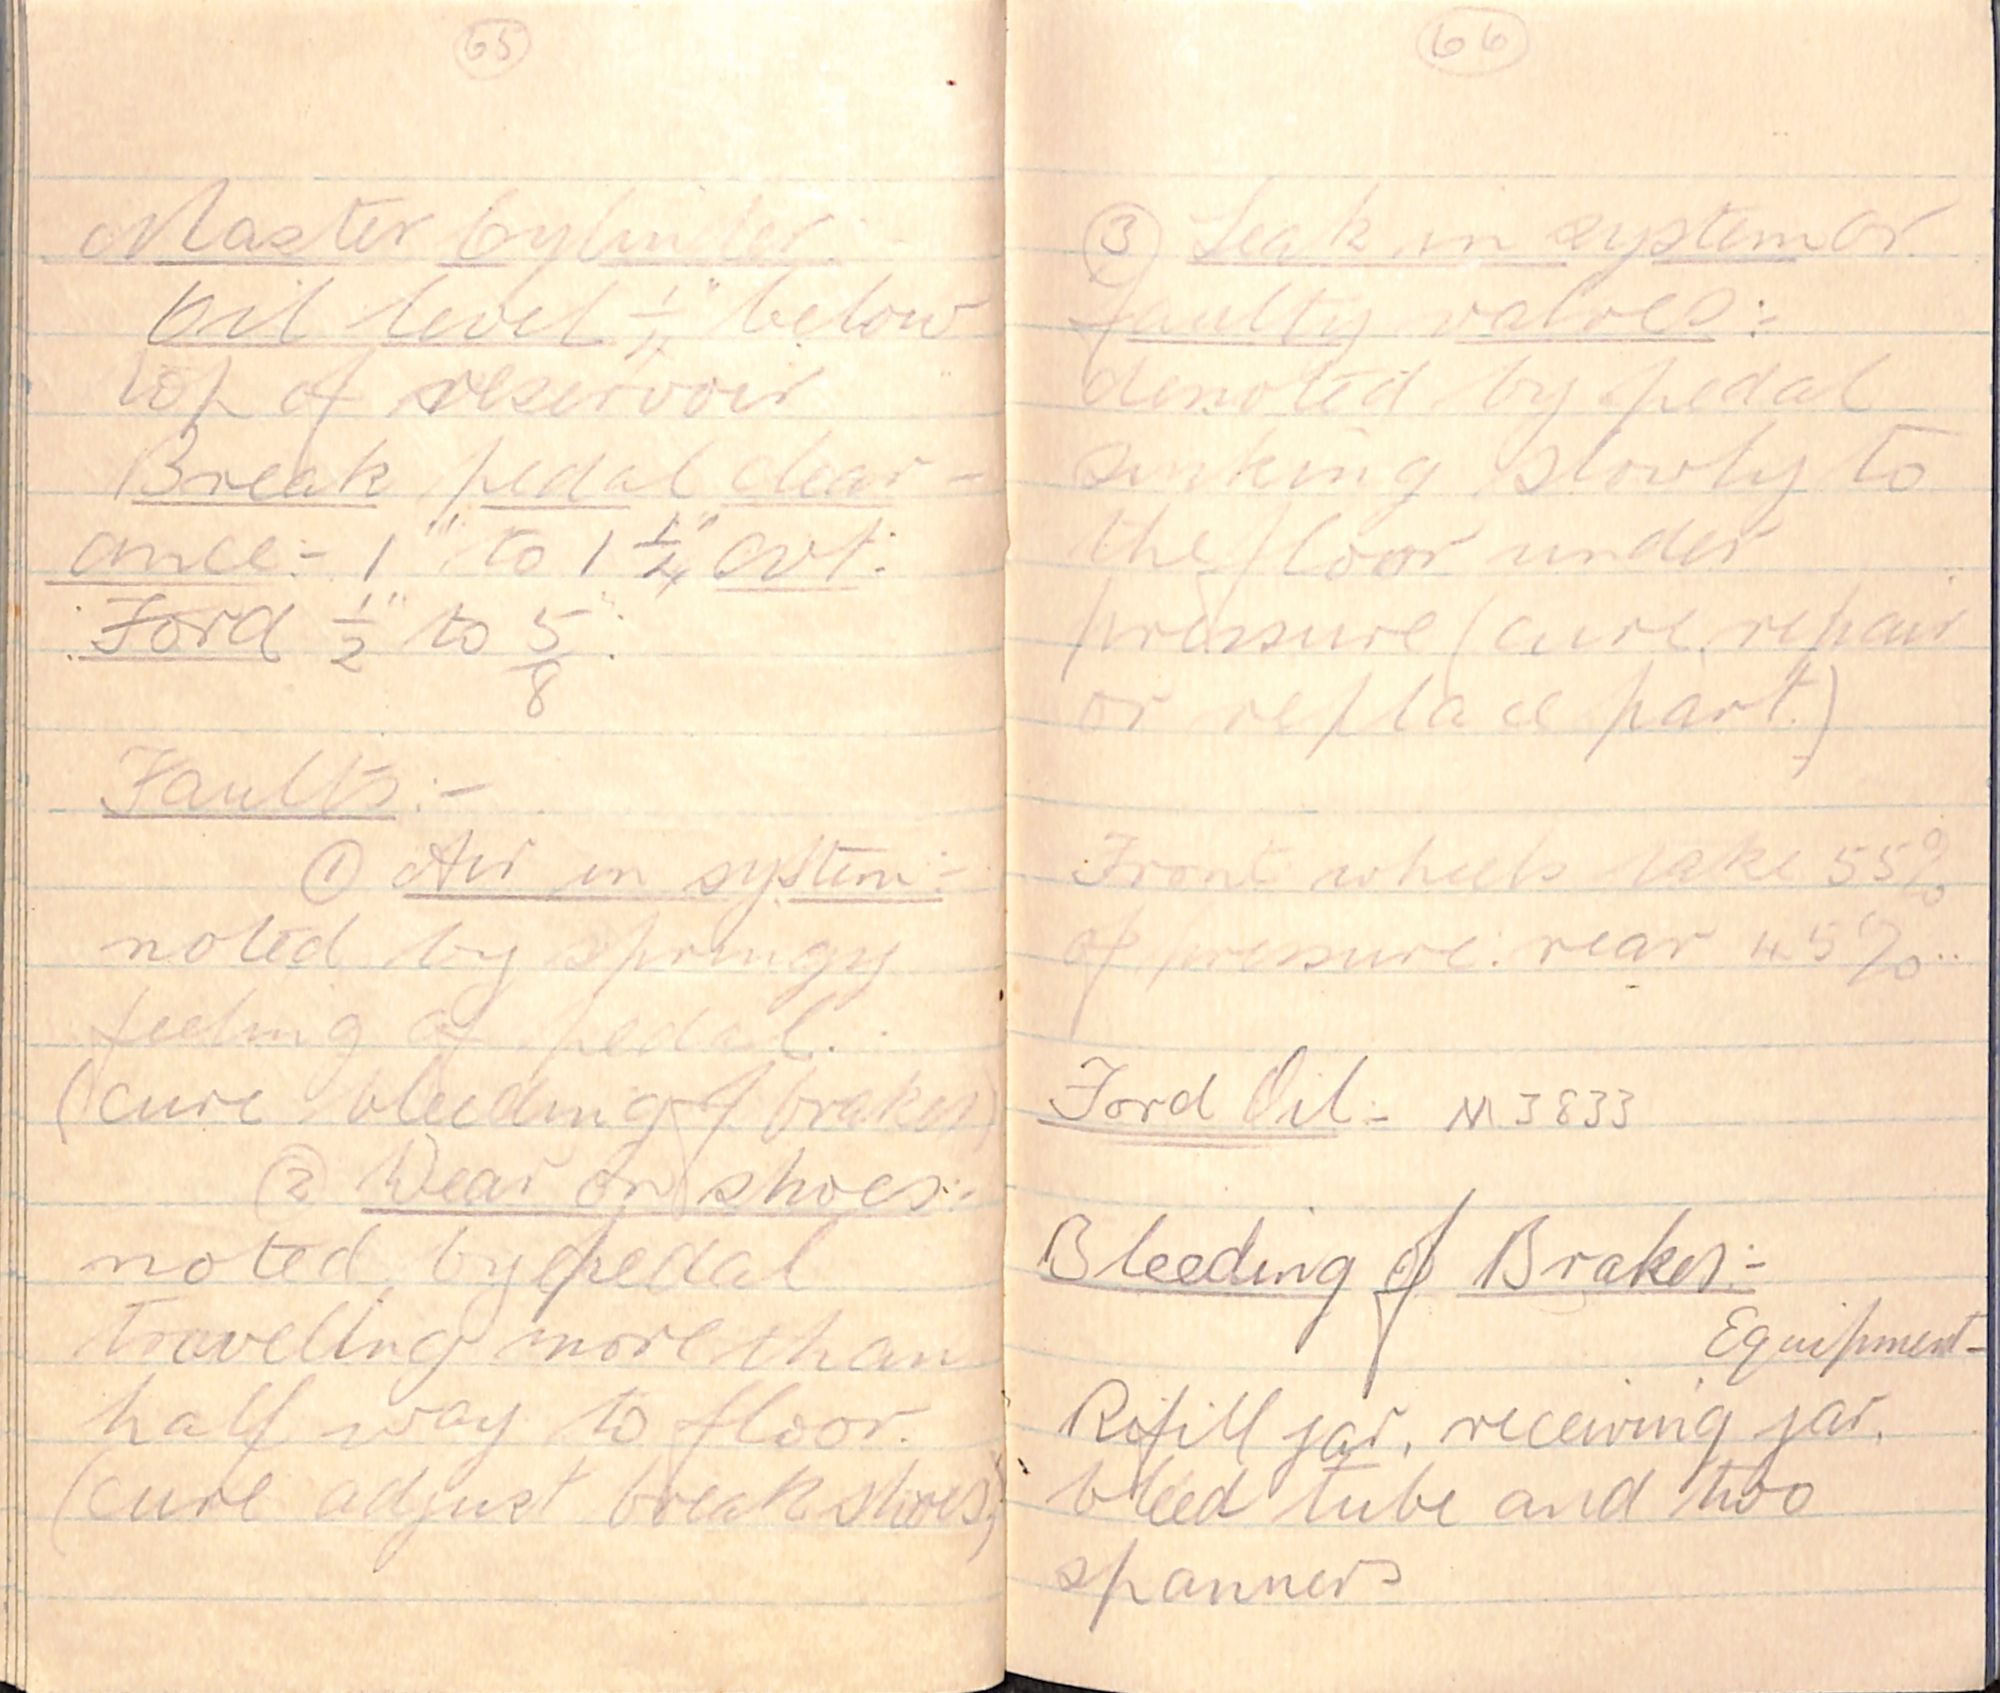 65
Master Cylinder:-
Oil level 1/4" below
top of reservoir
Break pedal clear-
ance:- 1" to 1 1/4"
Ford 1/2" to 5/8"
Faults:-
① Air in system:-
noted by springy
feeling of pedal.
(cure bleeding of brakes)
② Wear on shoes:-
noted by pedal
traveling more than
half way to floor.
(cure adjust break shoes)
66
③ Leak in system or
faulty valves:-
denoted by pedal
sinking slowly to
the floor under
pressure (cure, repair
or replace part.)
Front wheels take 55%
of pressure. rear 45%.
Ford Oil:- M3833
Bleeding of Brakes:-
Equipment-
Refill jar, receiving jar,
bleed tube and two
spanners